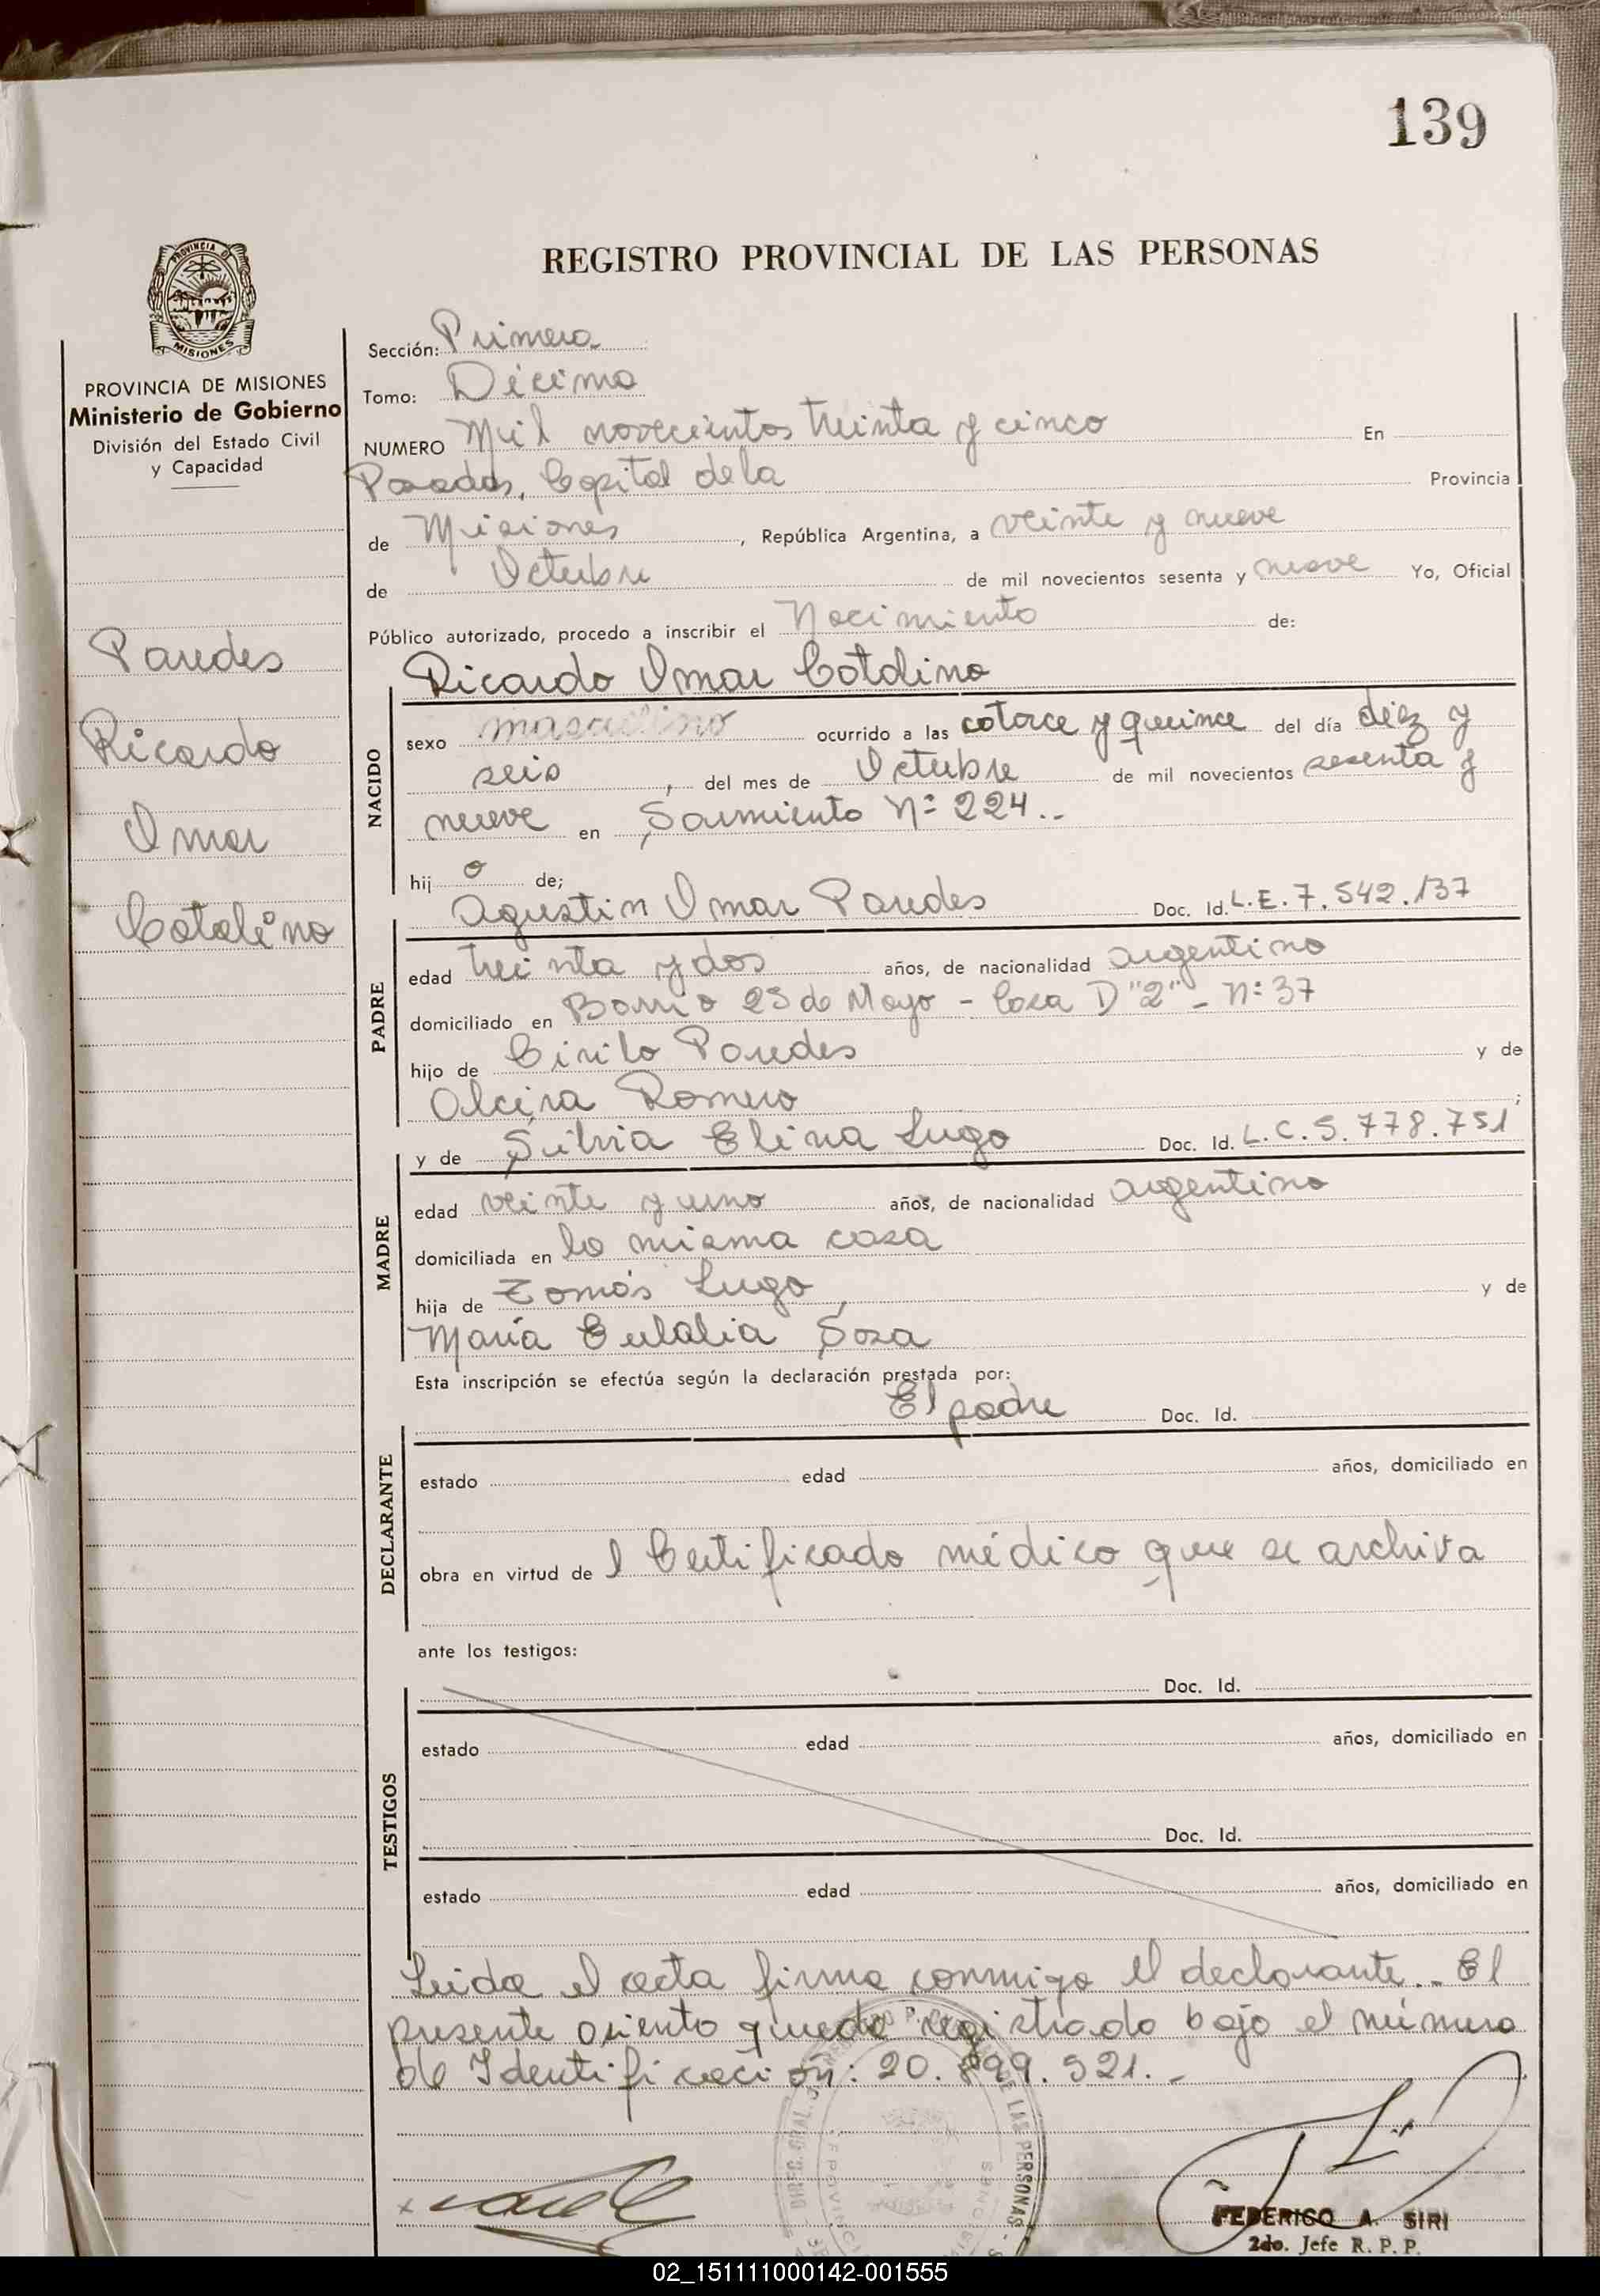 139
REGISTRO PROVINCIAL DE LAS PERSONAS
PROVINCIA DE MISIONES
Ministerio de Gobierno
División del Estado Civil
y Capacidad
Paredes
Ricardo
Omar
Catalino
Sección: Primera
Tomo: Décimo
NUMERO Mil novecientos treinta y cinco En
Posadas, Capital de la Provincia
de Misiones, República Argentina, a veinte y nueve
de Octubre de mil novecientos sesenta y nueve Yo, Oficial
Público autorizado, procedo a inscribir el Nacimiento de:
Ricardo Omar Catalino
NACIDO
sexo masculino ocurrido a las catorce y quince del día diez y
seis, del mes de Octubre de mil novecientos sesenta y
nueve en Sarmiento Nº 224..
hijo de;
Agustin Omar Paredes Doc. Id. L.E. 7.542.137
PADRE
edad treinta y dos años, de nacionalidad argentino
domiciliado en Barrio 25 de Mayo - Casa D "2" - Nº 37
hijo de Cirilo Paredes y de
Alcira Romero;
y de Silvia Elina Lugo Doc. Id. L.C. 5.778.751
MADRE
edad veinte y uno años, de nacionalidad argentina
domiciliada en la misma casa
hija de Tomás Lugo y de
María Eulalia Sosa
Esta inscripción se efectúa según la declaración prestada por:
El padre Doc. Id.
DECLARANTE
estado edad años, domiciliado en
obra en virtud de l Certificado médico que se archiva
ante los testigos:
Doc. Id.
TESTIGOS
estado edad años, domiciliado en
Doc. Id.
estado edad años, domiciliado en
Leida el acta firma conmigo el declarante.. El
presente asiento queda registrado bajo el número
de Identificación: 20.899.521.-
FEDERICO A. SIRI
2do. Jefe R. P. P.
02_151111000142-001555